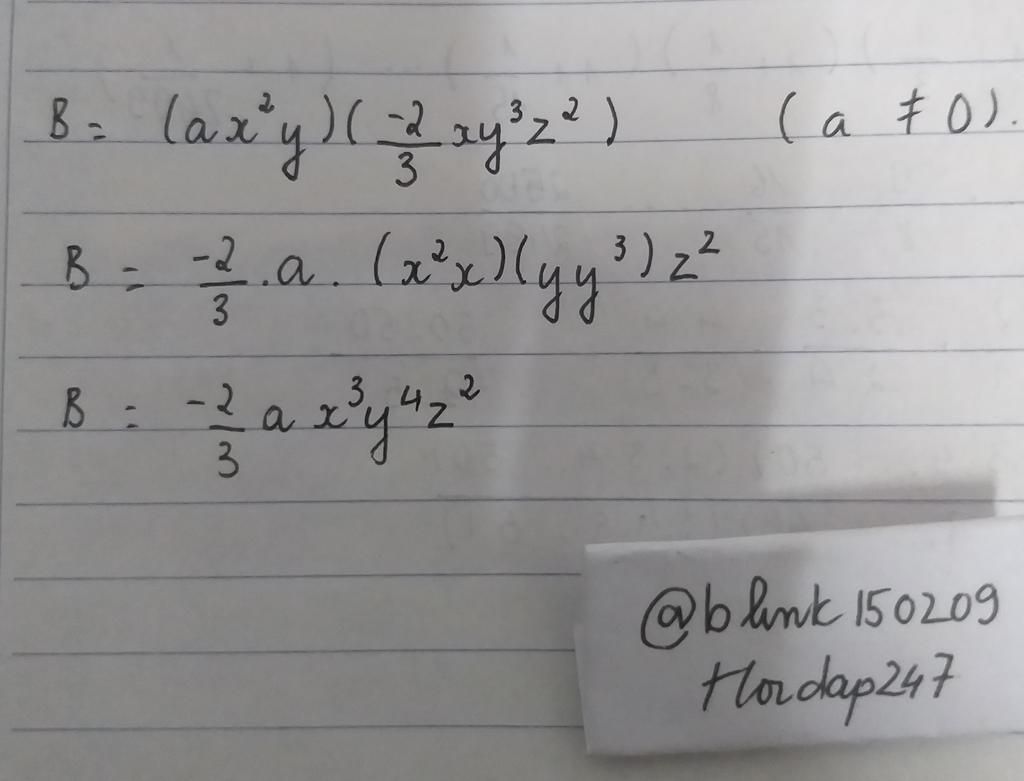 B = (ax²y)(-2/3 xy³z²) (a ≠ 0).
B = -2/3 . a . (x²x)(yy³)z²
B = -2/3 a x³y⁴z²
@blink150209
Hoidap247